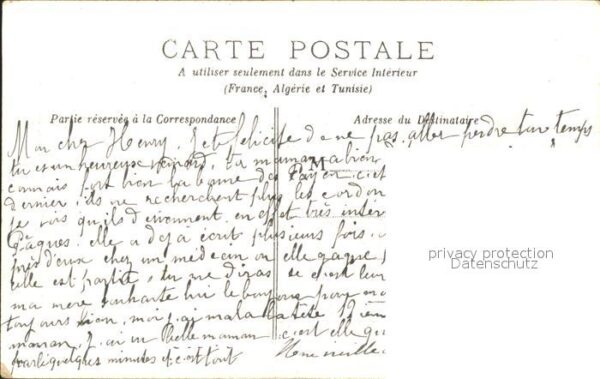 CARTE POSTALE
A utiliser seulement dans le Service Intérieur
(France, Algérie et Tunisie)
Partie réservée à la Correspondance
Adresse du Destinataire
Mon cher Henry. Je te félicite de ne pas aller perdre ton temps
tu es un heureuse ta maman a bien
M
connais fort bien la bonne des Payen c'est
dernier, ils ne recherchent plus les cordon
je vois qu'ils deviennent en effet très intér
Pâques. elle a déjà écrit plusieurs fois.
près d'eux chez un médecin où elle gagne
elle est partie, tu ne diras se c'est leur
ma mère souhaite lui le bonjour pour mo
toujours bien, moi j'ai mal à la tête
maman. j'ai un belle maman c'est elle qu
parle quelques minutes et c'est tout
privacy protection
Datenschutz